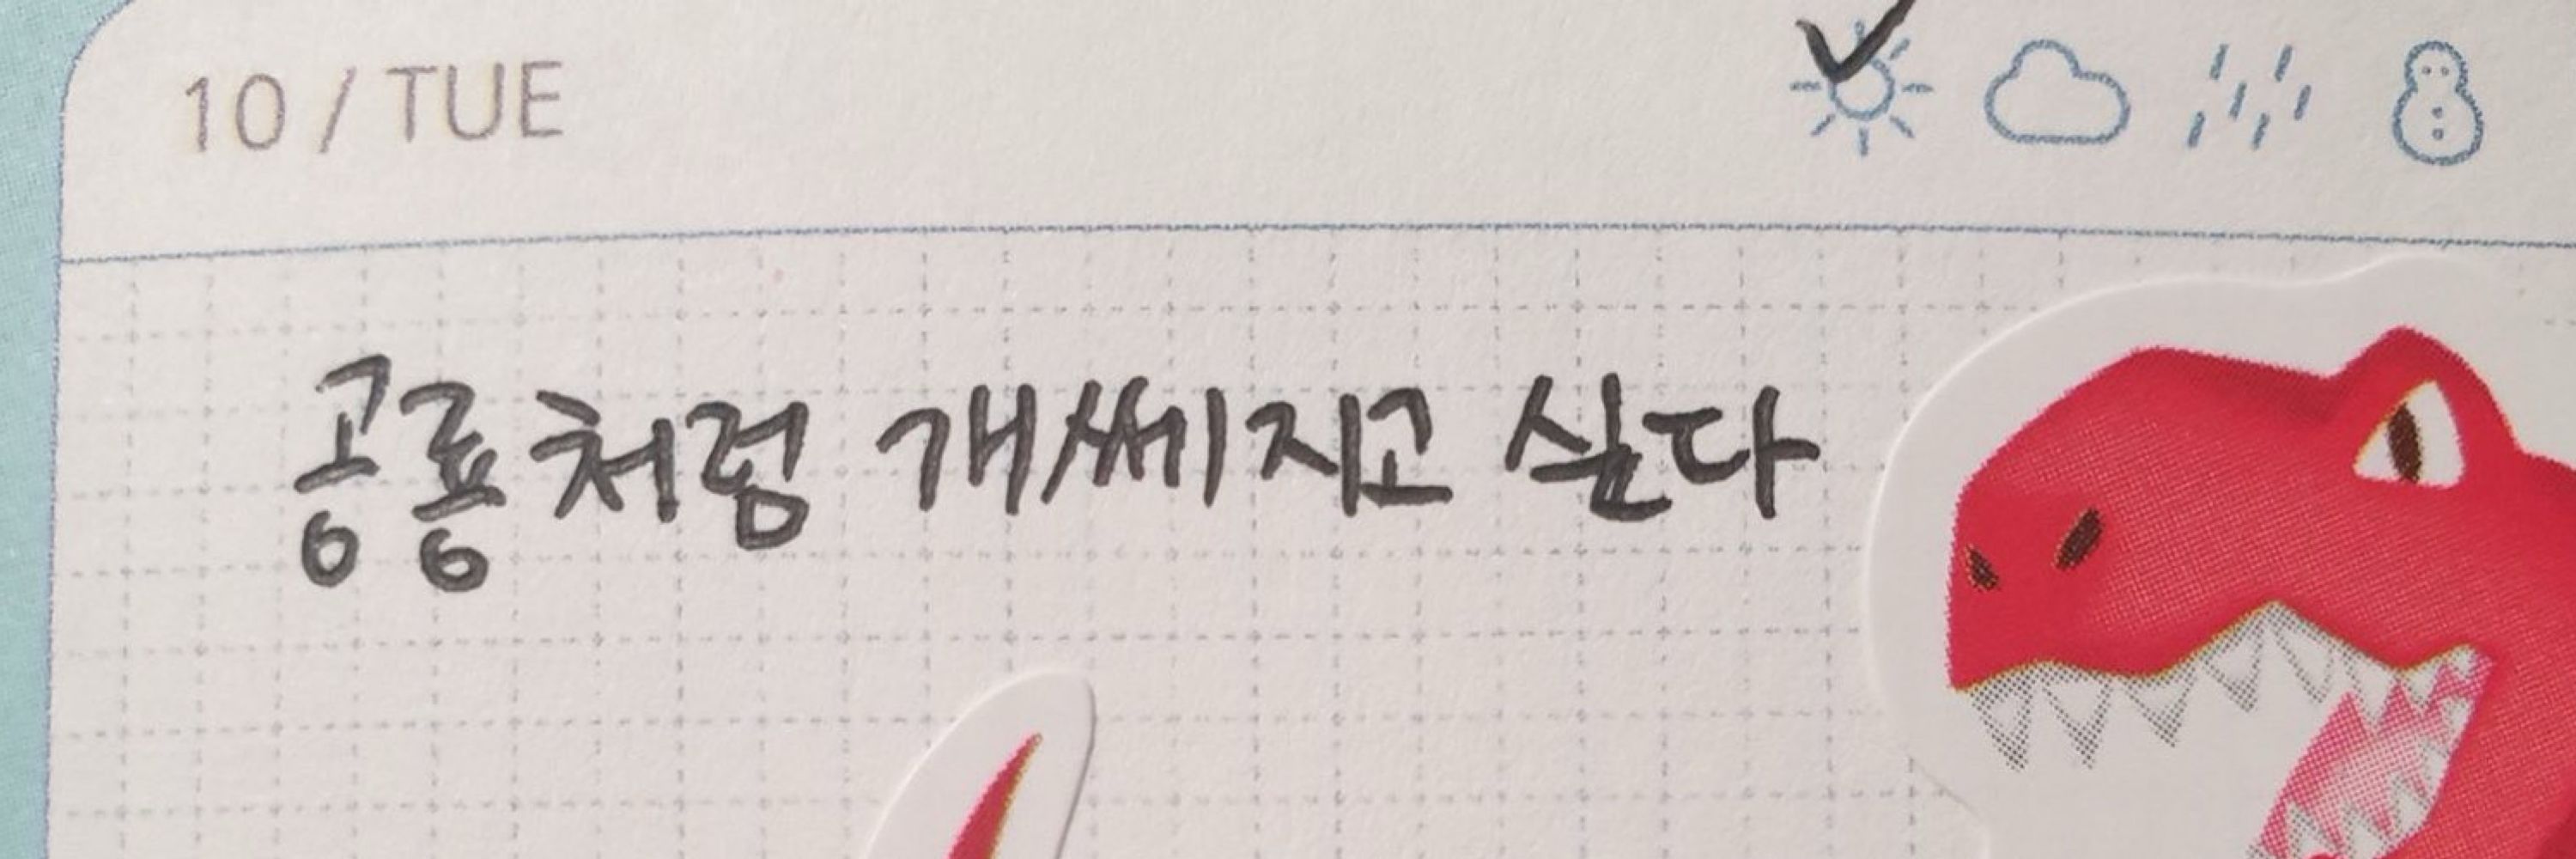 10 / TUE
공룡처럼 개쎄지고 싶다